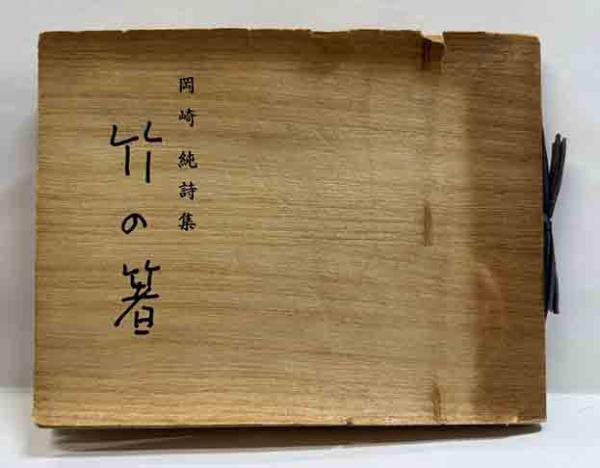 岡崎純詩集
竹の箸